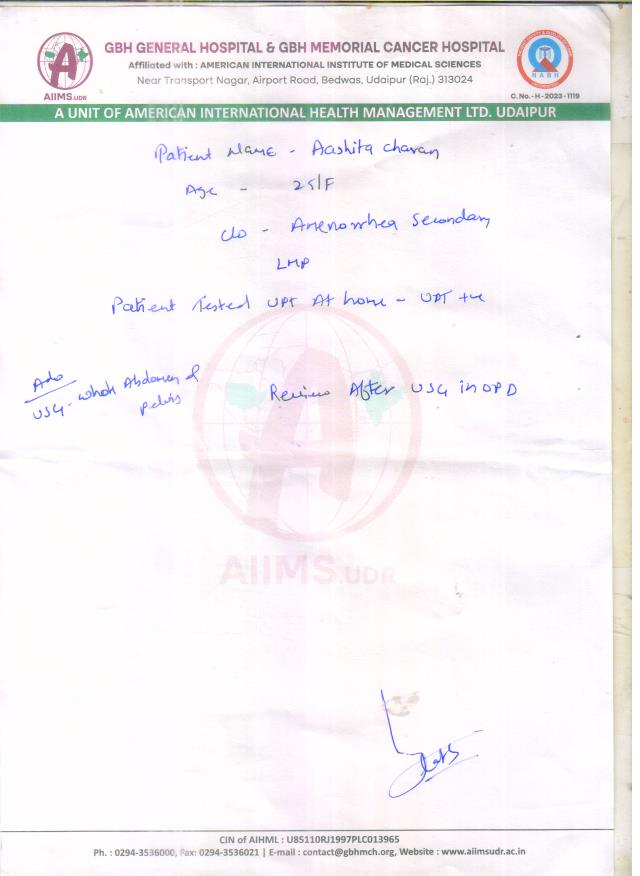 GBH GENERAL HOSPITAL & GBH MEMORIAL CANCER HOSPITAL
Affiliated with : AMERICAN INTERNATIONAL INSTITUTE OF MEDICAL SCIENCES
Near Transport Nagar, Airport Road, Bedwas, Udaipur (Raj.) 313024
AIIMS.UDR
NABH
C. No. - H - 2023 - 1119
A UNIT OF AMERICAN INTERNATIONAL HEALTH MANAGEMENT LTD. UDAIPUR
Patient Name - Aashita Charan
Age - 25/F
c/o - Amenorrhea Secondary
LMP
Patient Tested UPT At home - UPT +ve
Adv
USG - Whole Abdomen &
pelvis
Review After USG in OPD
AIIMS.UDR
CIN of AIHML : U85110RJ1997PLC013965
Ph. : 0294-3536000, Fax: 0294-3536021 | E-mail : contact@gbhmch.org, Website : www.aiimsudr.ac.in